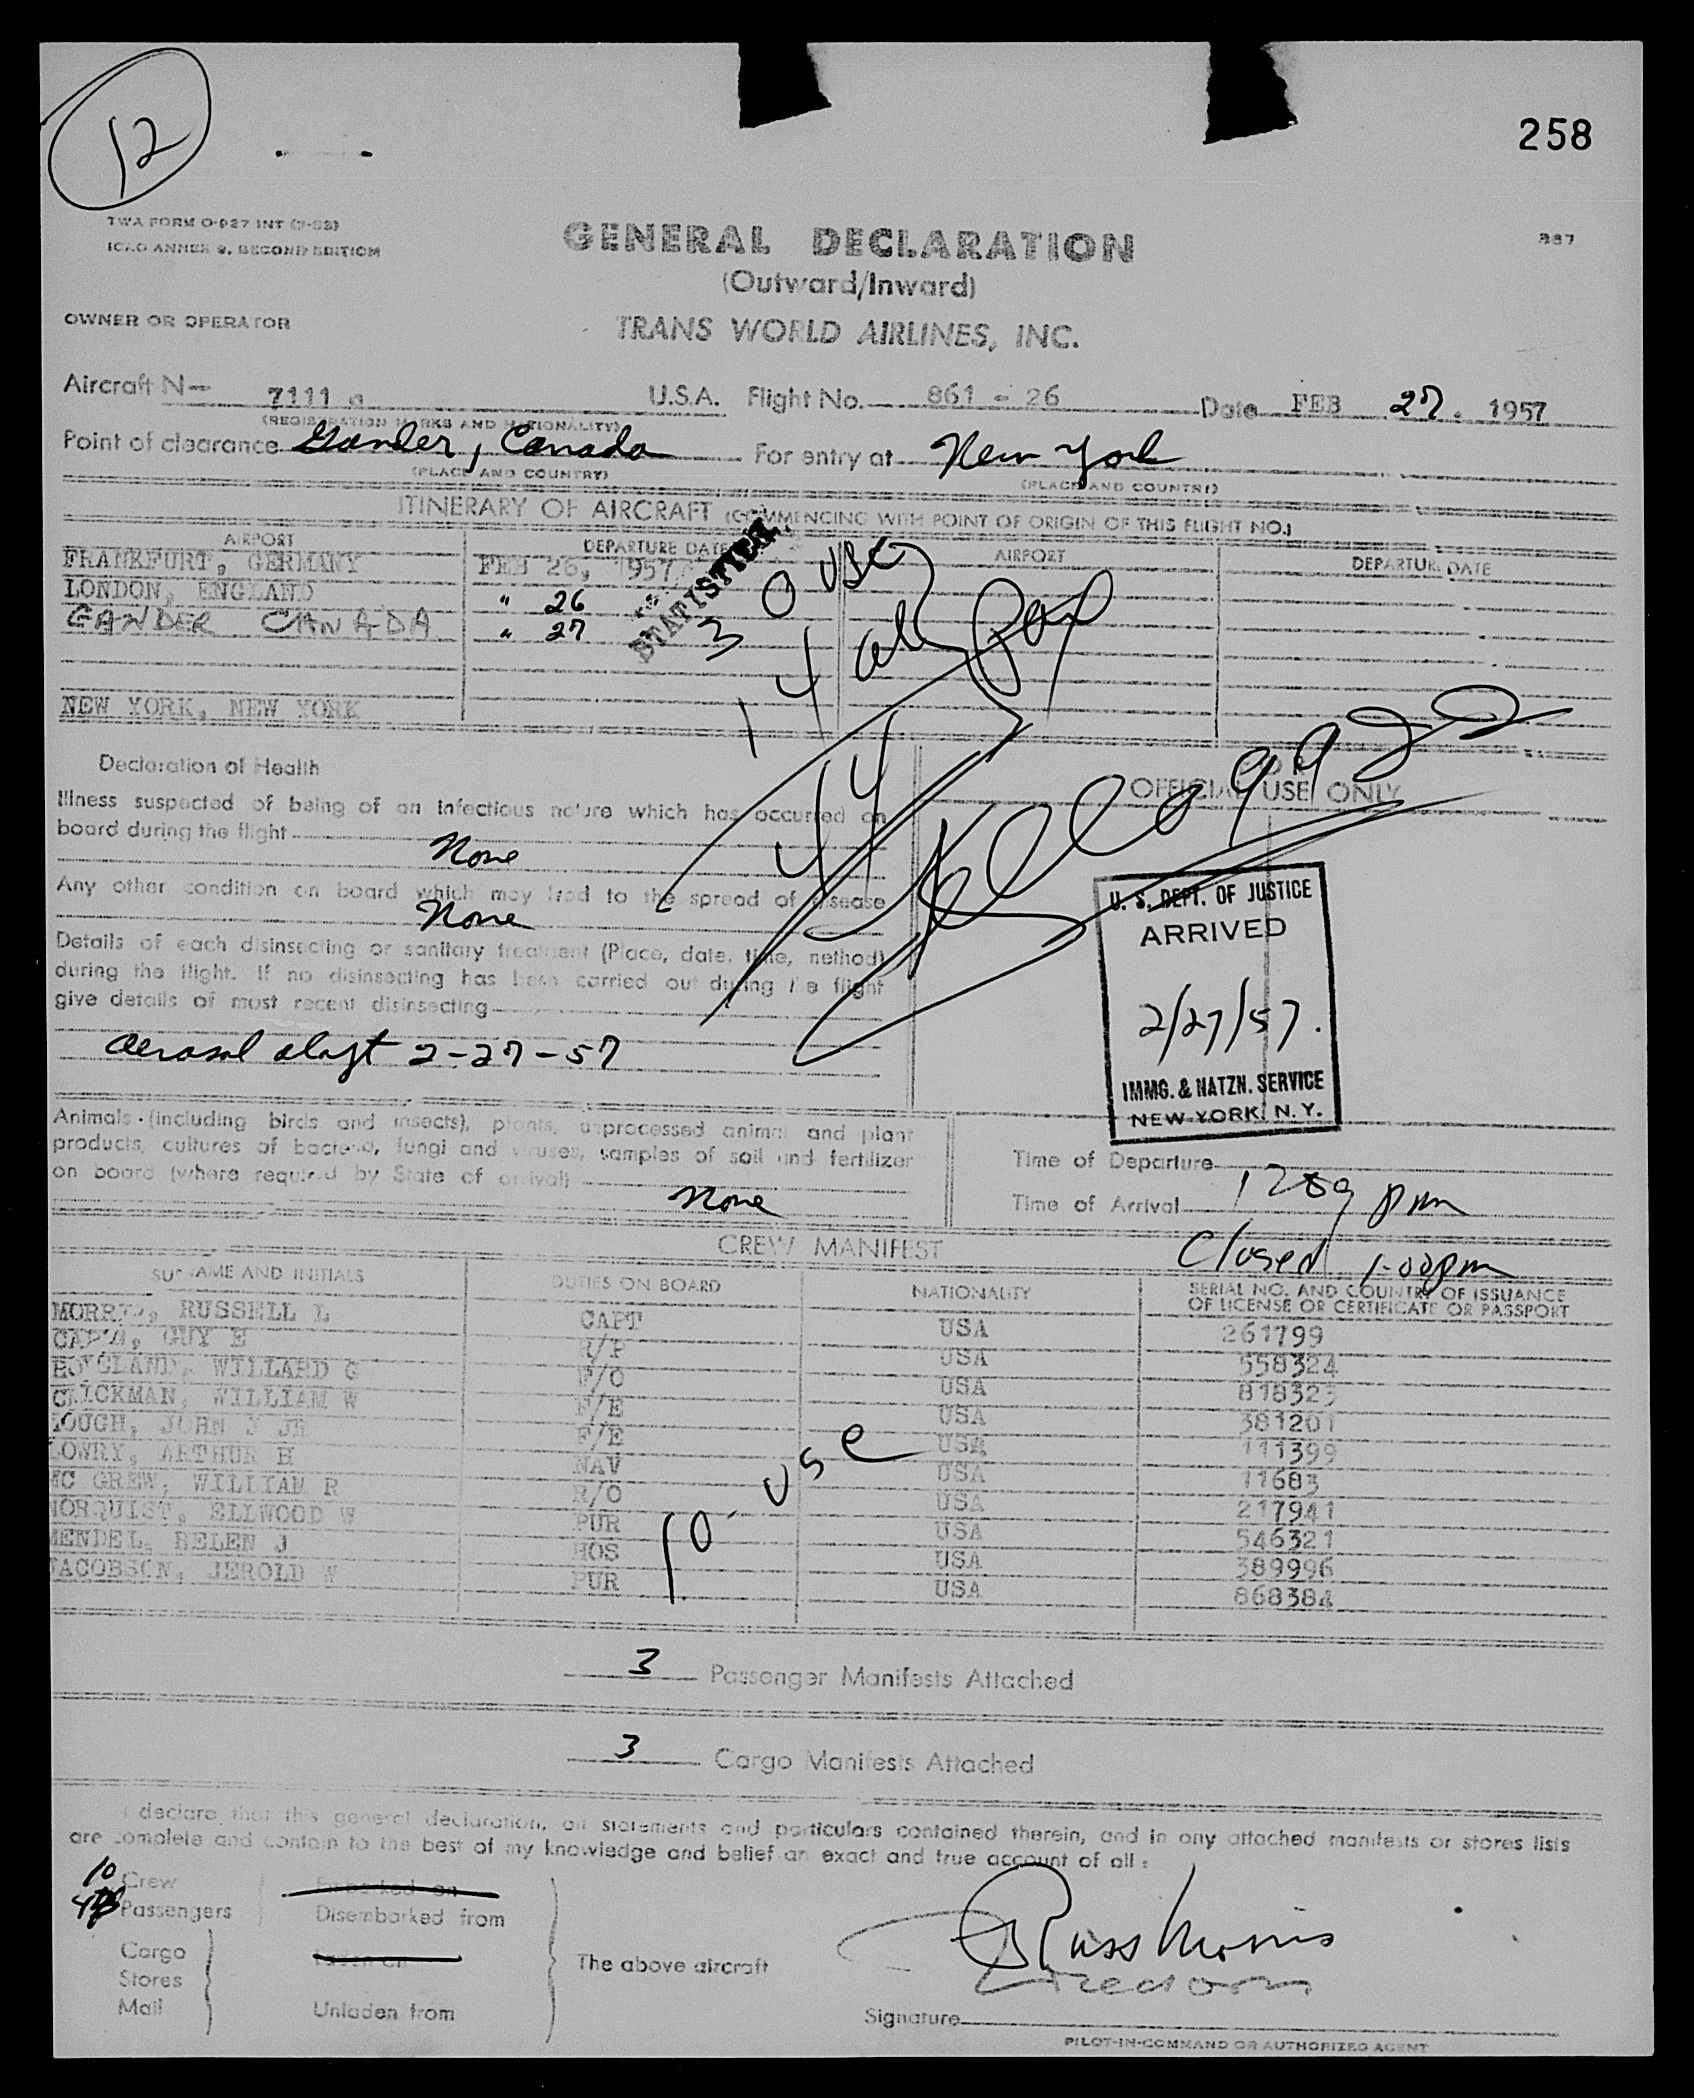 12
258
TWA FORM O-927 INT
ICAO ANNEX 9, SECOND EDITION
GENERAL DECLARATION
(Outward/Inward)
OWNER OR OPERATOR
TRANS WORLD AIRLINES, INC.
Aircraft N- 7111 U.S.A. Flight No. 861 - 26 Date FEB 27. 1957
(REGISTRATION MARKS AND NATIONALITY)
Point of clearance Gander, Canada For entry at New York
(PLACE AND COUNTRY) (PLACE AND COUNTRY)
ITINERARY OF AIRCRAFT (COMMENCING WITH POINT OF ORIGIN OF THIS FLIGHT NO.)
AIRPORT DEPARTURE DATE AIRPORT DEPARTURE DATE
FRANKFURT, GERMANY FEB 26, 1957
LONDON, ENGLAND " 26
GANDER CANADA " 27
NEW YORK, NEW YORK
STATISTICAL
30 USC
14 all
44 Pax
Declaration of Health
Illness suspected of being of an infectious nature which has occurred on
board during the flight
None
Any other condition on board which may lead to the spread of disease
None
Details of each disinsecting or sanitary treatment (Place, date, time, method)
during the flight. If no disinsecting has been carried out during the flight
give details of most recent disinsecting
2-27-57
FOR
OFFICIAL USE ONLY
U. S. DEPT. OF JUSTICE
ARRIVED
2/27/57.
IMMG. & NATZN. SERVICE
NEW YORK, N.Y.
Animals (including birds and insects), plants, unprocessed animal and plant
products, cultures of bacteria, fungi and viruses, samples of soil and fertilizer
on board (where required by State of arrival)
None
Time of Departure
Time of Arrival 1259 pm
Closed 1:00pm
CREW MANIFEST
SURNAME AND INITIALS DUTIES ON BOARD NATIONALITY SERIAL NO. AND COUNTRY OF ISSUANCE
OF LICENSE OR CERTIFICATE OR PASSPORT
MORRIS, RUSSELL L CAPT USA 261799
GUY E R/P USA 558324
WILLARD G F/O USA 818323
GLICKMAN, WILLIAM W F/E USA 381201
JOHN J JR F/E USA 111399
LOWRY, ARTHUR H NAV USA 11683
MC GREW, WILLIAM R R/O USA 217941
NORQUIST, ELLWOOD W PUR USA 546321
MENDEL, HELEN J HOS USA 389996
JACOBSON, JEROLD W PUR USA 868384
10 USC
3 Passenger Manifests Attached
3 Cargo Manifests Attached
I declare that this general declaration, all statements and particulars contained therein, and in any attached manifests or stores lists
are complete and contain to the best of my knowledge and belief an exact and true account of all:
10 Crew Embarked on
Passengers Disembarked from
Cargo Laden on The above aircraft
Stores
Mail Unladen from
Russ Morris
Signature
PILOT-IN-COMMAND OR AUTHORIZED AGENT